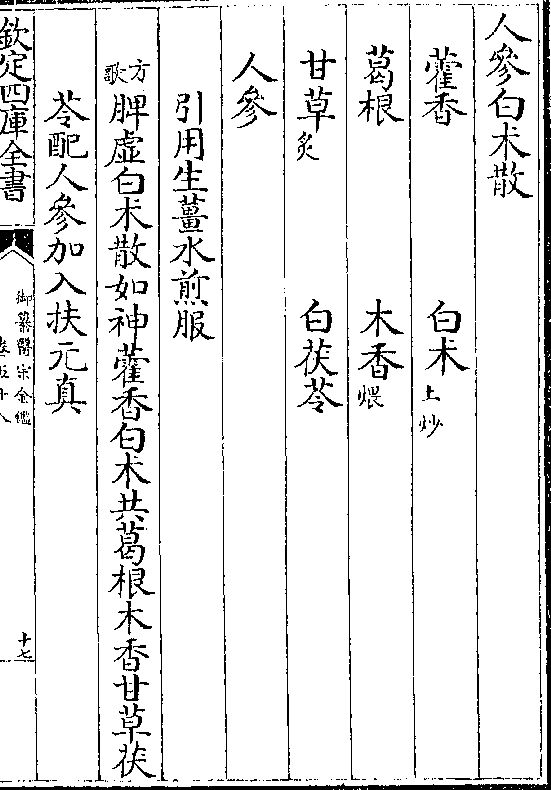 人參白朮散
藿香　白朮土炒
葛根　木香煨
甘草炙　白茯苓
人參
引用生薑水煎服
方歌 脾虛白朮散如神藿香白朮共葛根木香甘草茯
苓配人參加入扶元真
欽定四庫全書
御纂醫宗金鑑
卷五十八
十七